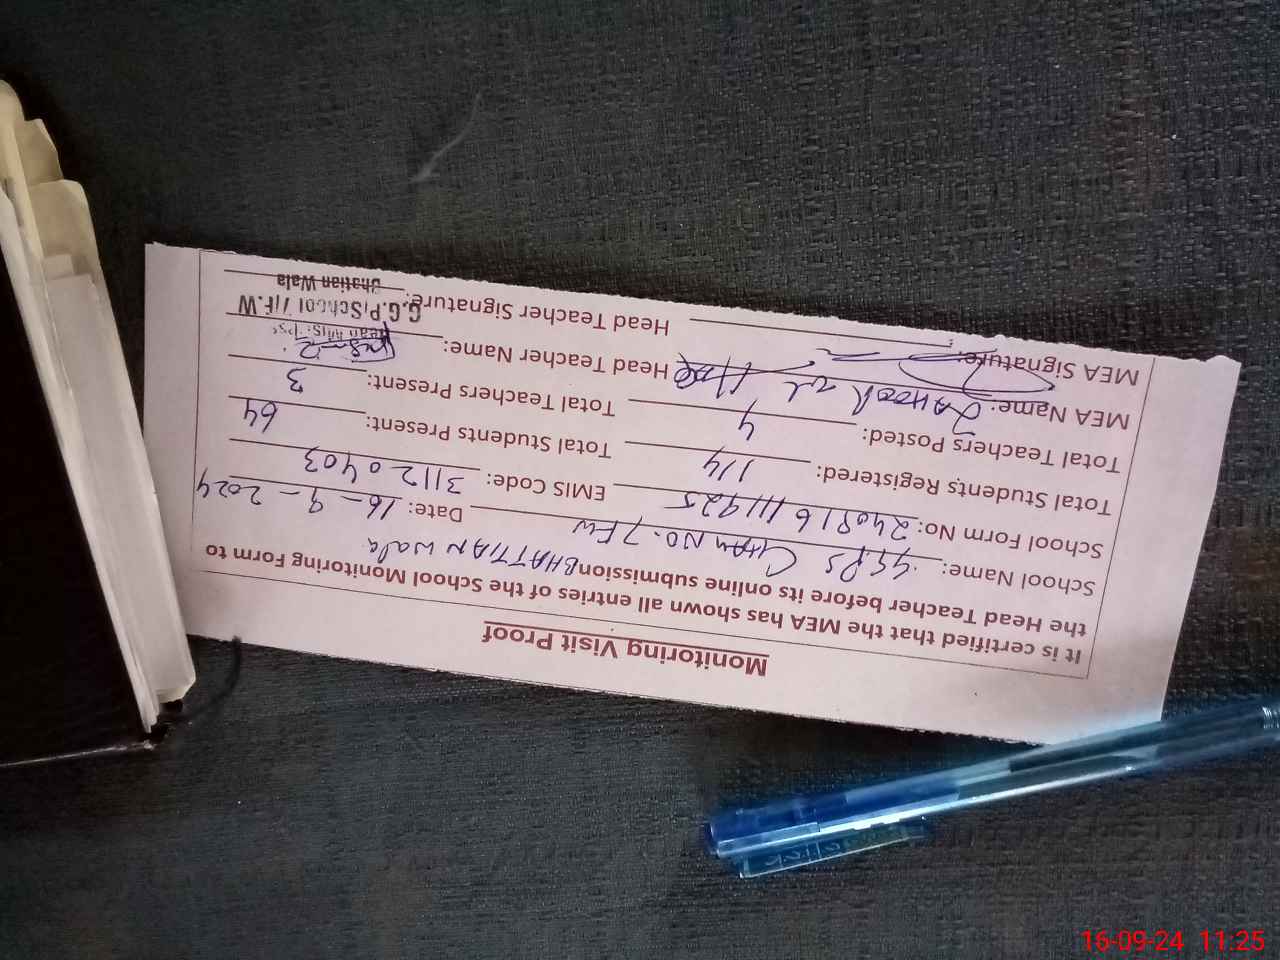 Monitoring Visit Proof
It is certified that the MEA has shown all entries of the School Monitoring Form to
the Head Teacher before its online submission BHATTIAN wala
School Name: GGPS CHAK NO. 7 FW Date: 16-9-2024
School Form No: 240816111925 EMIS Code: 31120403
Total Students Registered: 114 Total Students Present: 64
Total Teachers Posted: 4 Total Teachers Present: 3
MEA Name: Head Teacher Name:
MEA Signature: Head Teacher Signature:
G.G.P/School 7/F.W
Bhatian Wala
click
16-09-24 11:25